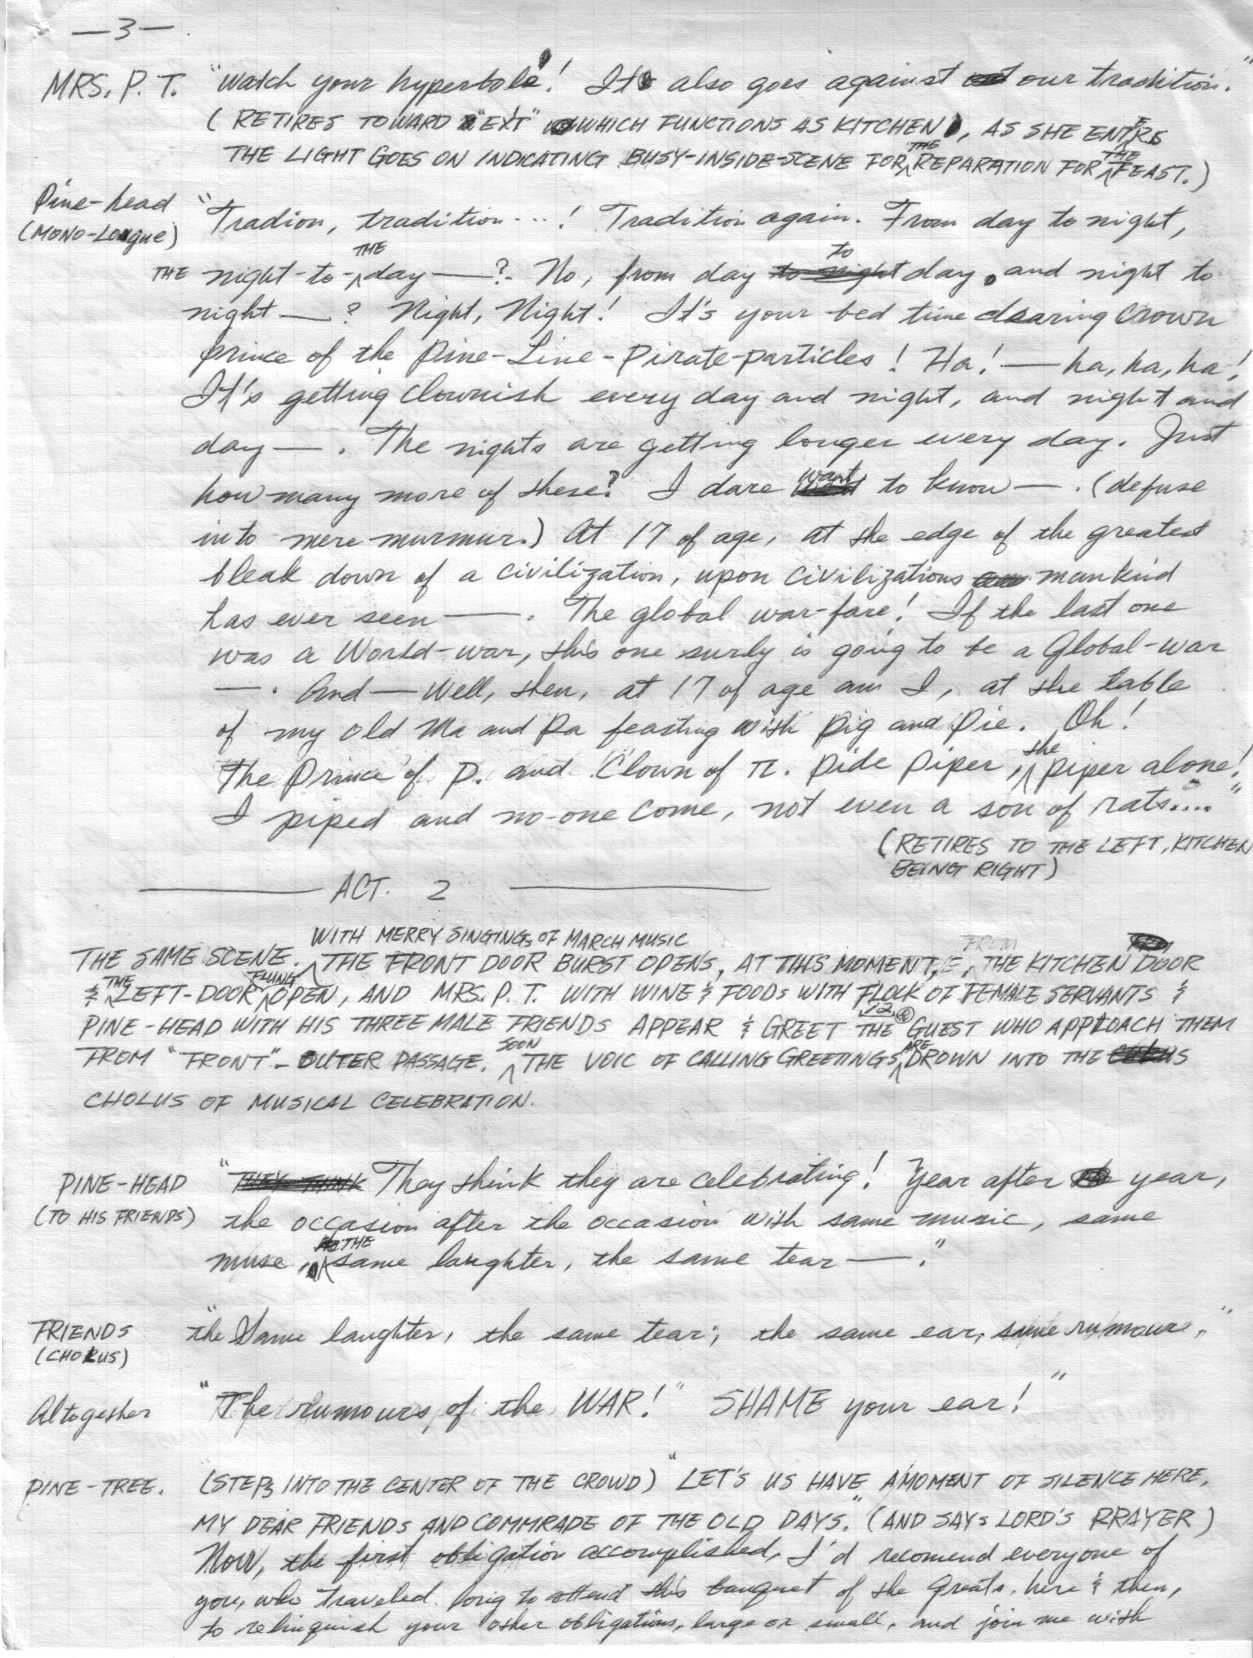 —3—
MRS. P. T. "Watch your hyperbole! It also goes against our tradition."
( RETIRES TOWARD "EXIT" WHICH FUNCTIONS AS KITCHEN, AS SHE ENTERS
THE LIGHT GOES ON INDICATING BUSY-INSIDE-SCENE FOR THE REPARATION FOR THE FEAST. )
Pine-head "Tradion, tradition ...! Tradition again. From day to night,
(MONO-LOGUE)
THE night-to-THE day —? No, from day to day, and night to
night —? Night, Night! It's your bed time dearing crown
prince of the Pine-Line-Pirate-particles! Ha! — ha, ha, ha!
It's getting clownish every day and night, and night and
day —. The nights are getting longer every day. Just
how many more of these? I dare want to know —. (defuse
into mere murmur.) At 17 of age, at the edge of the greatest
bleak down of a civilization, upon civilizations mankind
has ever seen —. The global war-fare! If the last one
was a World-war, this one surly is going to be a Global-war
—. And — Well, then, at 17 of age am I, at the table
of my old Ma and Pa feasting with Pig and Pie. Oh!
The 'Prince' of P. and 'Clown of π. Pide Piper, the piper alone!
I piped and no-one come, not even a son of rats...."
(RETIRES TO THE LEFT, KITCHEN
BEING RIGHT)
ACT. 2
THE SAME SCENE. WITH MERRY SINGINGS OF MARCH MUSIC THE FRONT DOOR BURST OPENS, AT THIS MOMENT, FROM THE KITCHEN DOOR
& THE LEFT-DOOR FLUNG OPEN, AND MRS. P. T. WITH WINE & FOODS WITH FLOCK OF FEMALE SERVANTS &
PINE-HEAD WITH HIS THREE MALE FRIENDS APPEAR & GREET THE 12 GUEST WHO APPLOACH THEM
FROM "FRONT"- OUTER PASSAGE. SOON THE VOIC OF CALLING GREETINGS ARE DROWN INTO THE
CHOLUS OF MUSICAL CELEBRATION.
PINE-HEAD "They think they are celebrating! Year after year,
(TO HIS FRIENDS) the occasion after the occasion with same music, same
muse, THE same laughter, the same tear —."
FRIENDS "the Same laughter, the same tear; the same ear, same rumour."
(CHORUS)
Altogether "The rumours of the WAR!" SHAME your ear!"
PINE-TREE. (STEPS INTO THE CENTER OF THE CROWD) "LET'S US HAVE A MOMENT OF SILENCE HERE,
MY DEAR FRIENDS AND COMMRADE OF THE OLD DAYS." (AND SAYS LORD'S PRAYER)
Now, the first obligation accomplished, I'd recomend everyone of
you, who traveled long to attend this banquet of the Greats, here & then,
to relinquish your other obligations, large or small, and join me with